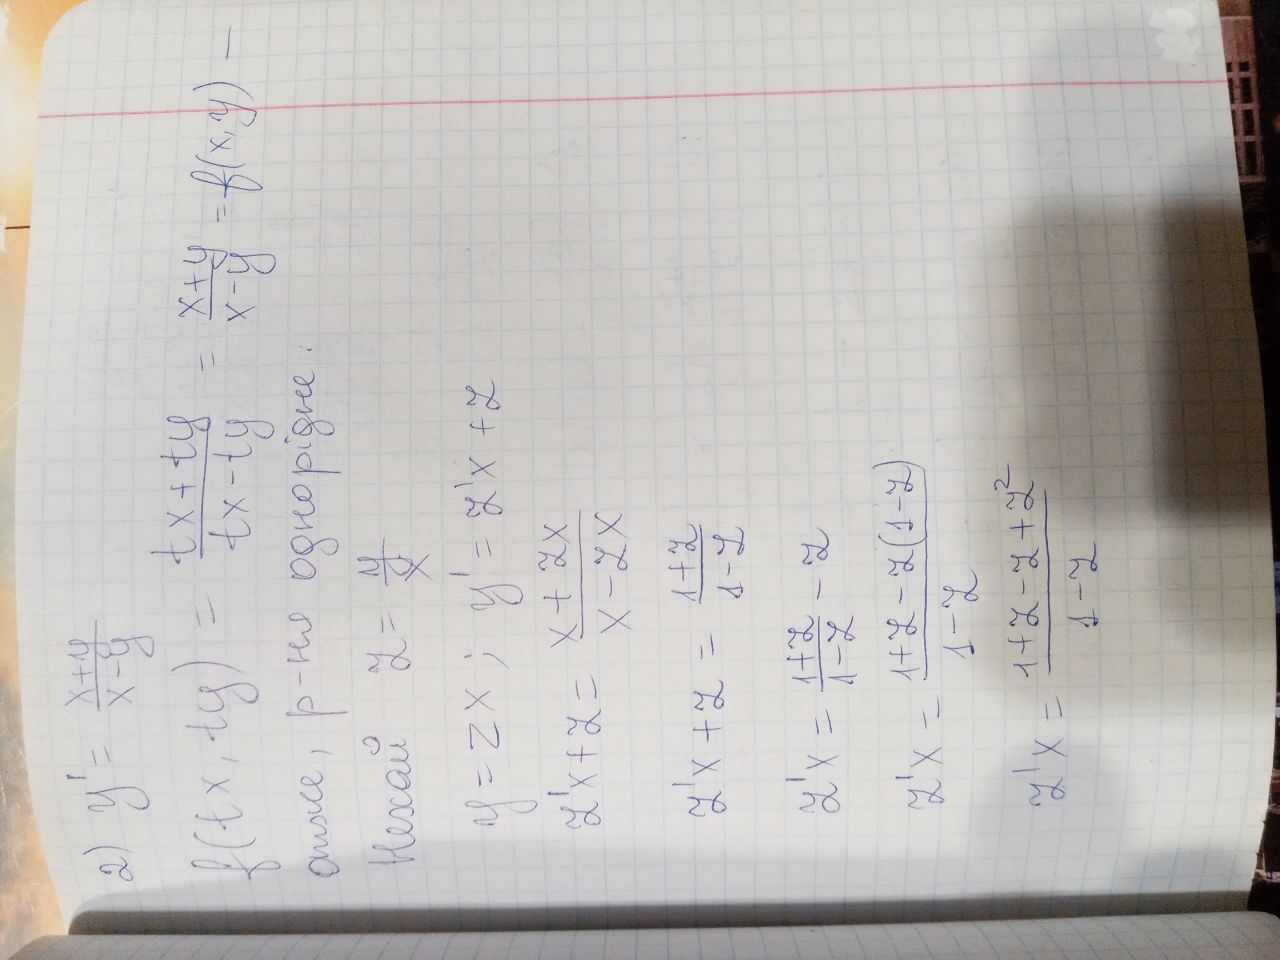 2) y' = x+y / x-y
f(tx, ty) = tx+ty / tx-ty = x+y / x-y = f(x,y) —
отже, р-ня однорідне.
Нехай z = y / x
y = zx; y' = z'x + z
z'x + z = x + zx / x - zx
z'x + z = 1+z / 1-z
z'x = 1+z / 1-z - z
z'x = 1+z-z(1-z) / 1-z
z'x = 1+z-z+z² / 1-z